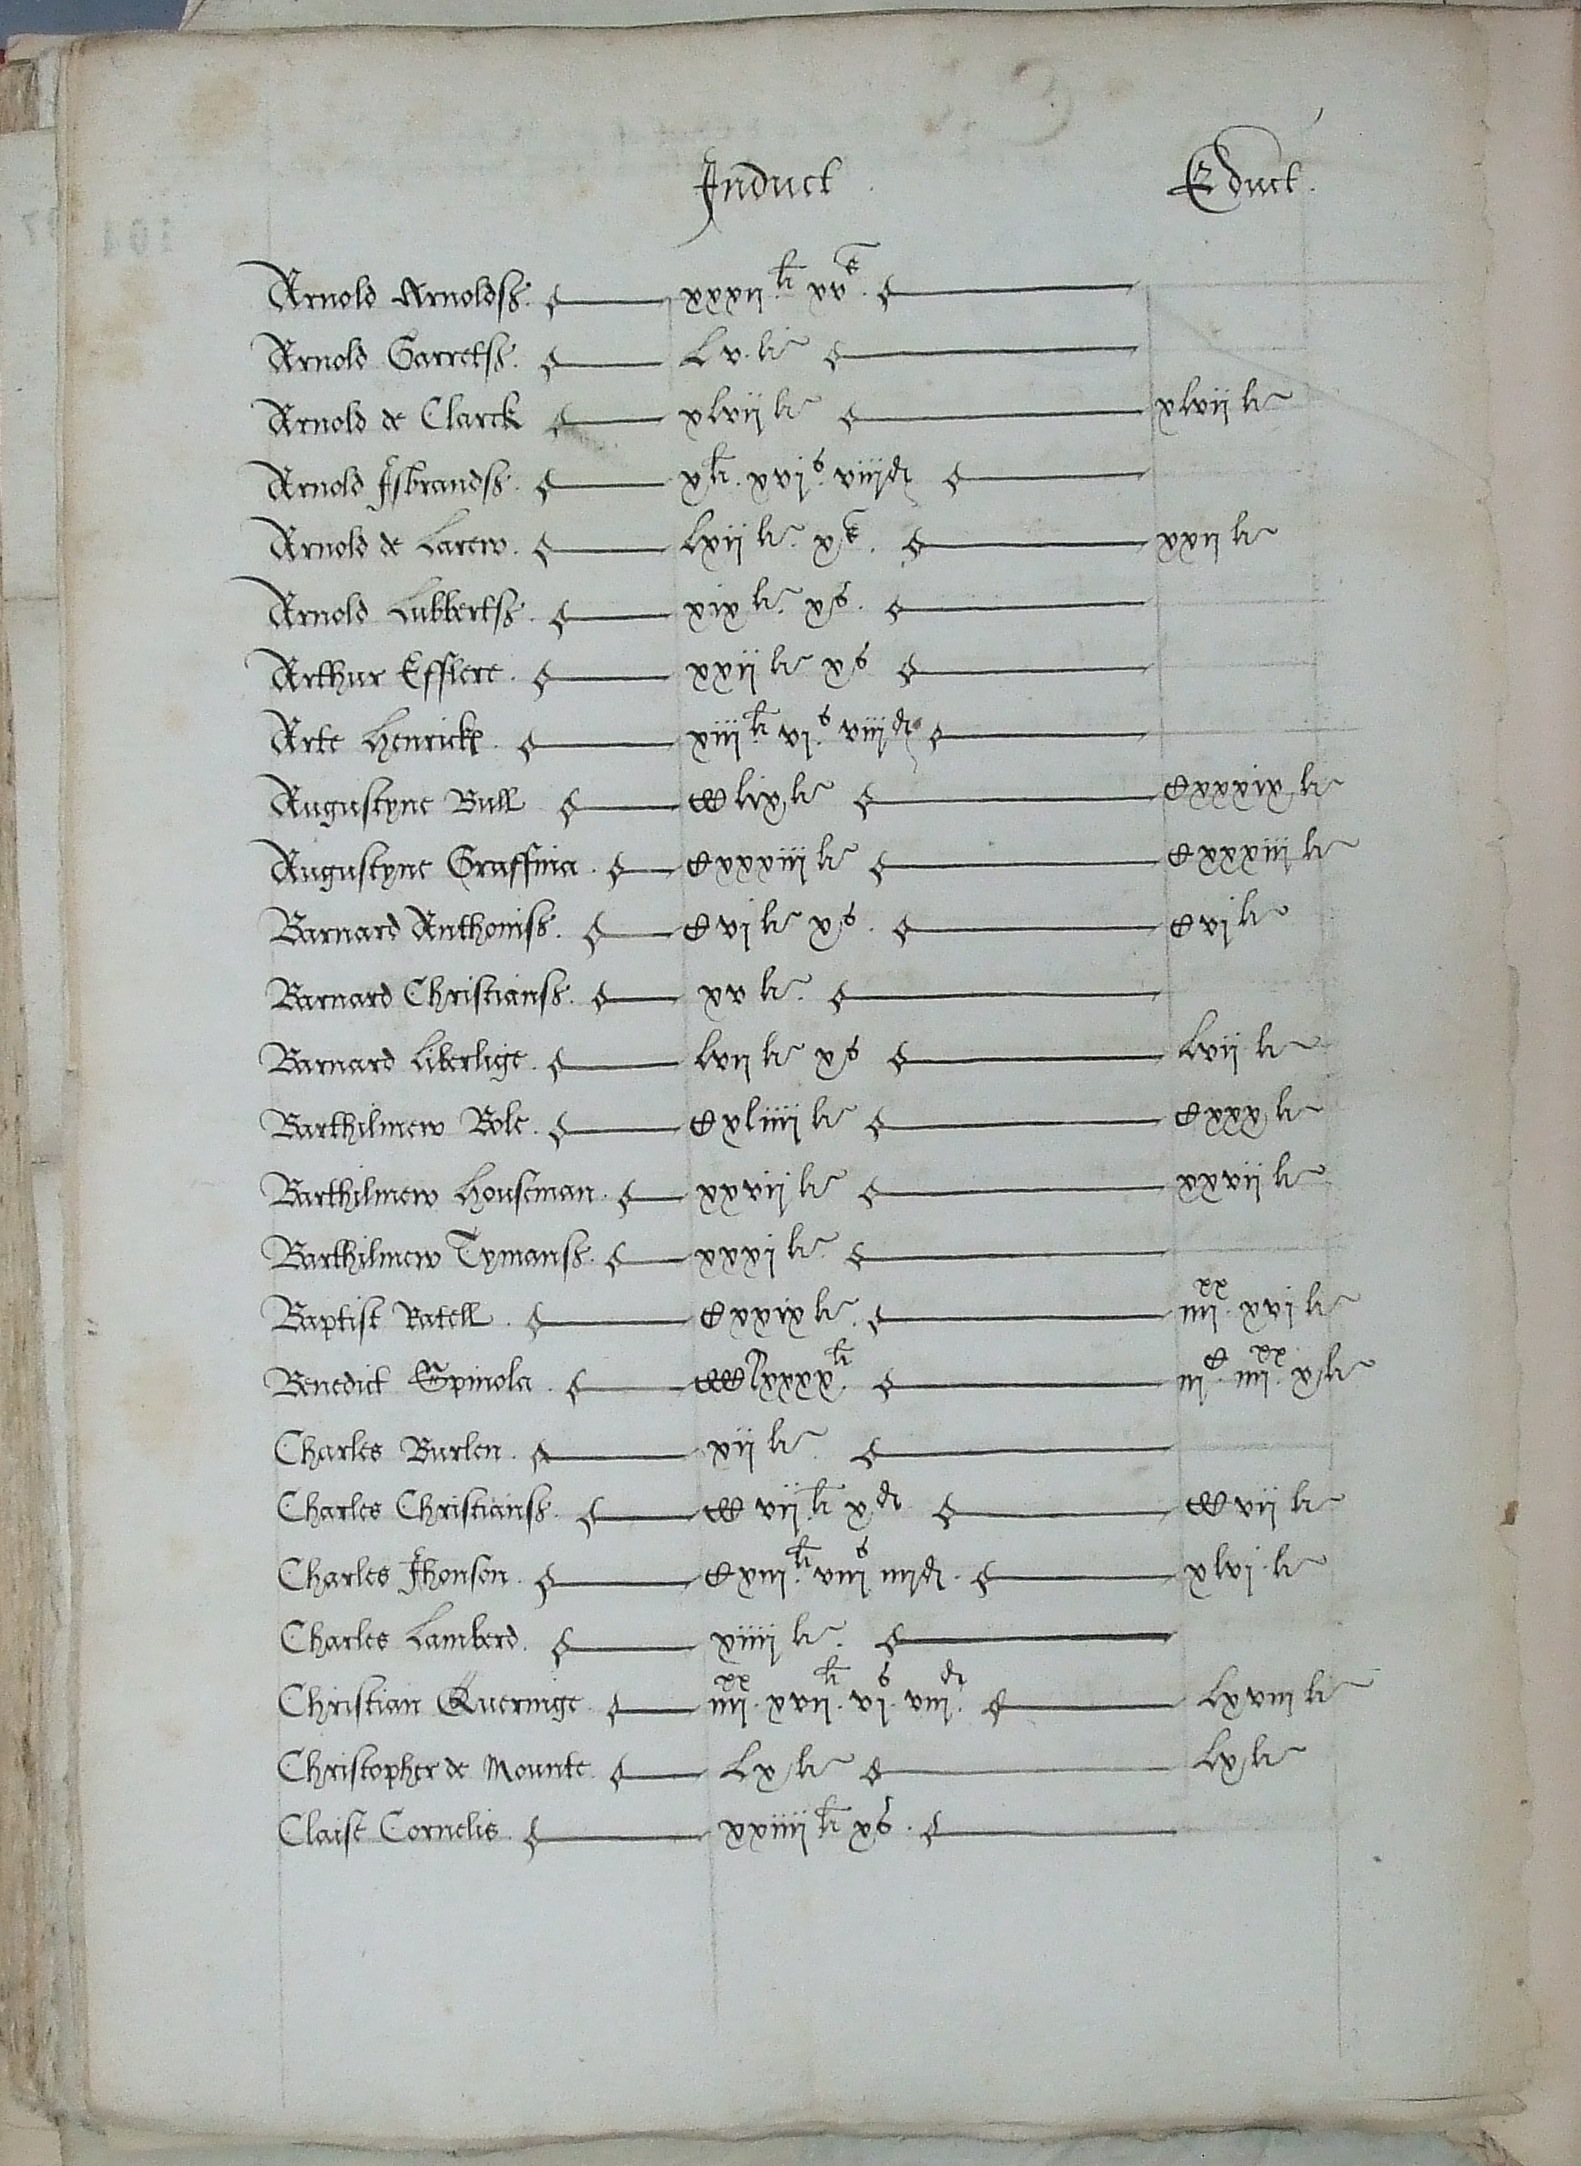 Induct Educt.
Arnold Arnoldss. xxxii li xv s.
Arnold Garretss. Lv. li
Arnold de Clarck xlvij li xlvij li
Arnold Isbrandss. x li. xvj s. viij d
Arnold de Larew. Lxij li. x s. xxij li
Arnold Lubbertss. xix li. x s.
Arthur Efflere. xxij li x s
Arte Henrickſ. xiij li vj s. viij d
Augustyne Bull CC lix li Cxxxix li
Augustyne Graffina. Cxxxiij li Cxxxiij li
Barnard Anthoniss. Cvj li x s. Cvj li
Barnard Christianss. xv li.
Barnard Liberlige. Lvij li x s Lvij li
Barthilmew Bole. Cxliiij li Cxxx li
Barthilmew Houseman. xxvij li xxvij li
Barthilmew Tymanss. xxxj li.
Baptist Ratell. Cxxix li. iiij xx. xvj li
Benedict Spinola. CCC lxxxx li. iij C. iiij xx. x li
Charles Burlen. xij li.
Charles Christianss. CC vij li x d CC vij li
Charles Jhonson. Cxiij li. viij s iiij d. xlvj. li
Charles Lamberd. xiiij li.
Christian Quernige. iiij xx. xvij li. vj s. viij d. Lxviij li
Christopher de Mounte. Lx li Lx li
Claise Cornelis. xxiiij li x s.
104